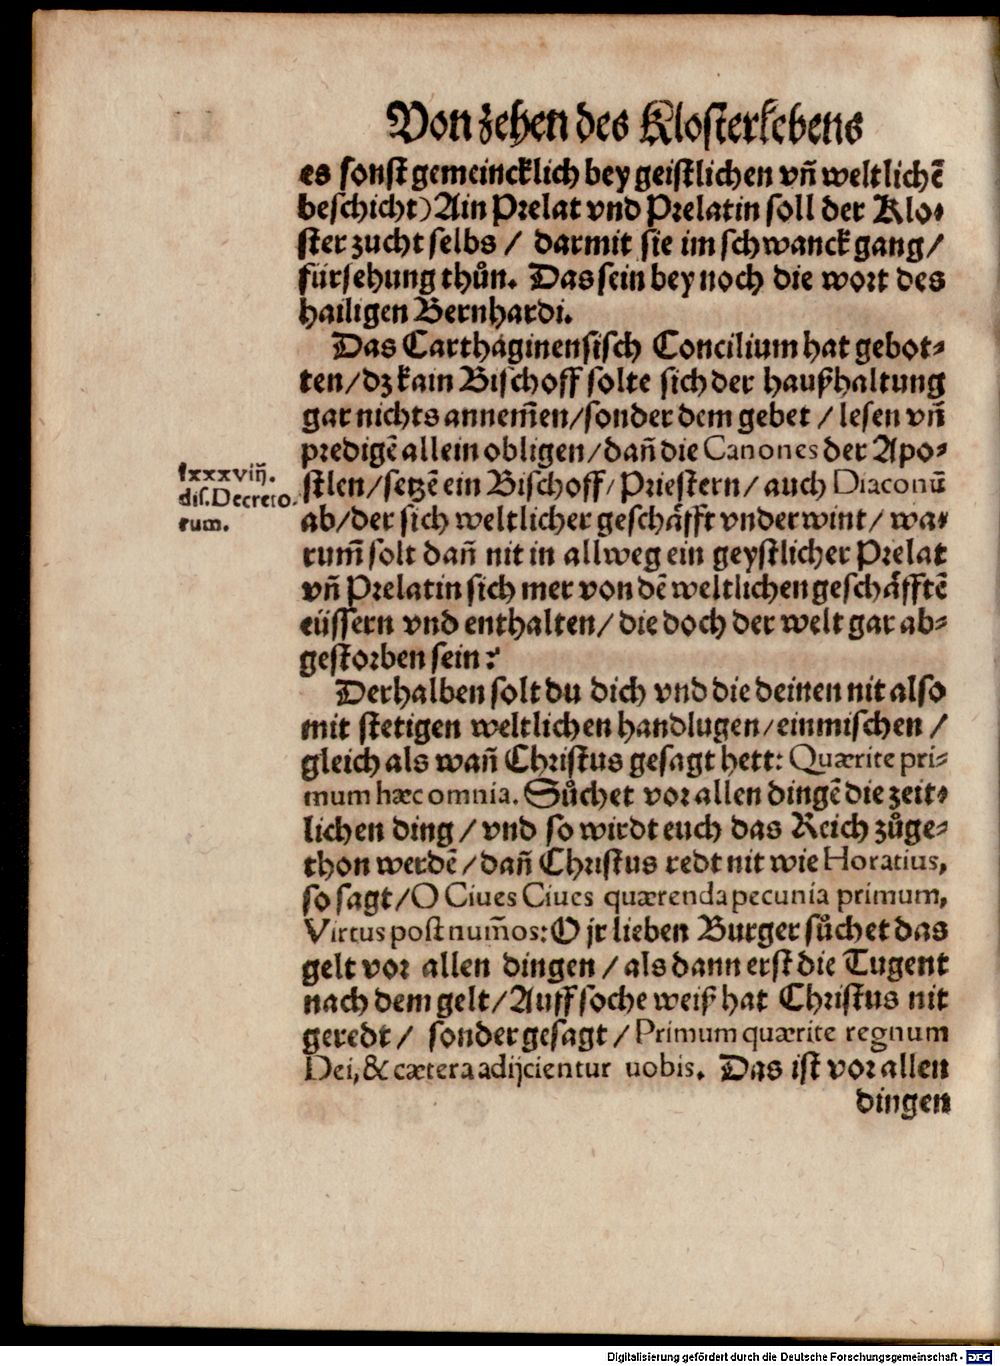 Von zehen des Klosterlebens
es sonst gemeincklich bey geistlichen vñ weltlichẽ
beschicht) Ain Prelat vnd Prelatin soll der Klo-
ster zucht selbs / darmit sie im schwanck gang /
fürsehung thůn. Das sein bey noch die wort des
hailigen Bernhardi.
Das Carthaginensisch Concilium hat gebot-
ten / dz kain Bischoff solte sich der haußhaltung
gar nichts annem̃en / sonder dem gebet / lesen vñ
predigẽ allein obligen / dañ die Canones der Apo-
lxxxviij.
dis. Decreto-
rum.
stlen / setzẽ ein Bischoff / Priestern / auch Diaconũ
ab / der sich weltlicher geschäfft vnderwint / wa-
rum̃ solt dañ nit in allweg ein geystlicher Prelat
vñ Prelatin sich mer von dẽ weltlichen geschäfftẽ
eüssern vnd enthalten / die doch der welt gar ab-
gestorben sein?
Derhalben solt du dich vnd die deinen nit also
mit stetigen weltlichen handlugen / einmischen /
gleich als wañ Christus gesagt hett: Quærite pri-
mum hæc omnia. Sůchet vor allen dingẽ die zeit-
lichen ding / vnd so wirdt euch das Reich zůge-
thon werdẽ / dañ Christus redt nit wie Horatius,
so sagt / O Ciues Ciues quærenda pecunia primum,
Virtus post num̃os: O jr lieben Burger sůchet das
gelt vor allen dingen / als dann erst die Tugent
nach dem gelt / Auff soche weiß hat Christus nit
geredt / sonder gesagt / Primum quærite regnum
Dei, & cætera adijcientur uobis. Das ist vor allen
dingen
Digitalisierung gefördert durch die Deutsche Forschungsgemeinschaft - DFG